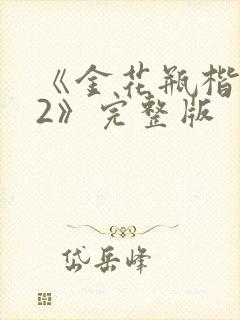 《金花瓶楷
2》完整版
岱岳峰